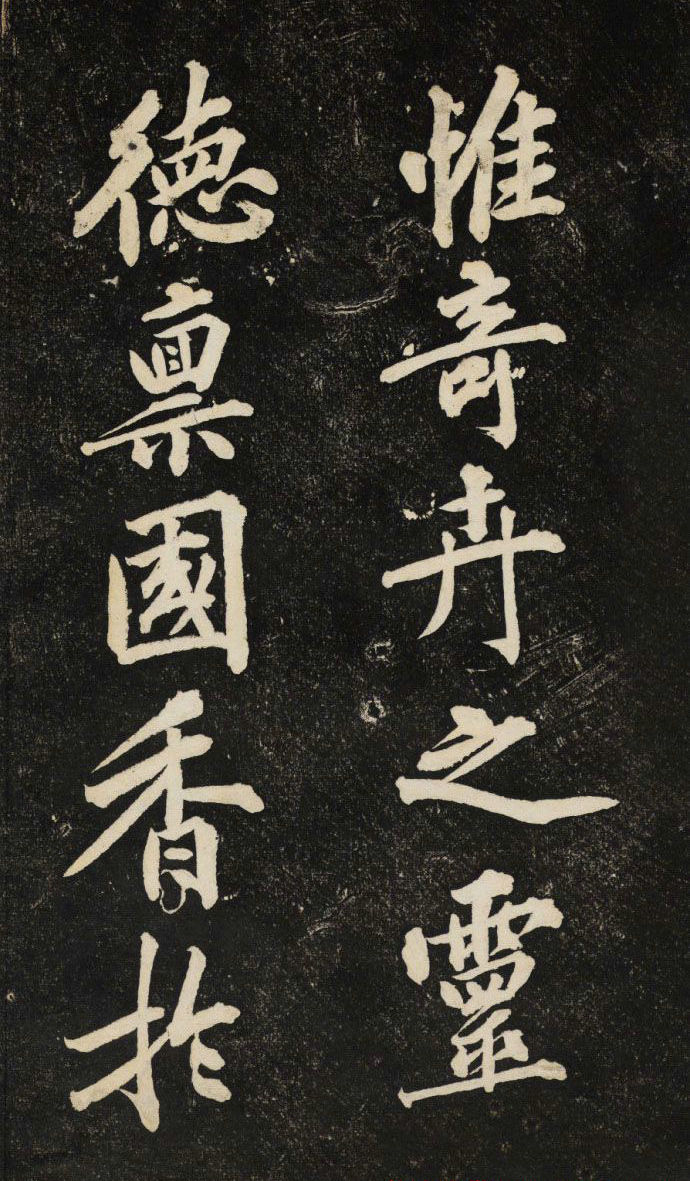 惟奇卉之靈
德稟國香於